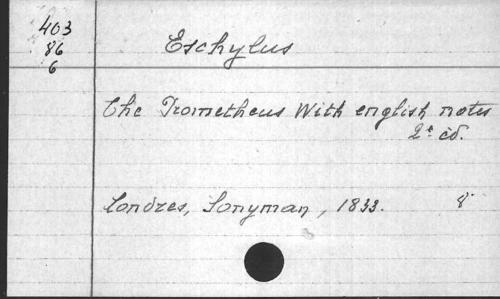 403
86
6
Eschylus
The Prometheus With english notes
2e éd.
Londres, Longman, 1833. 8°